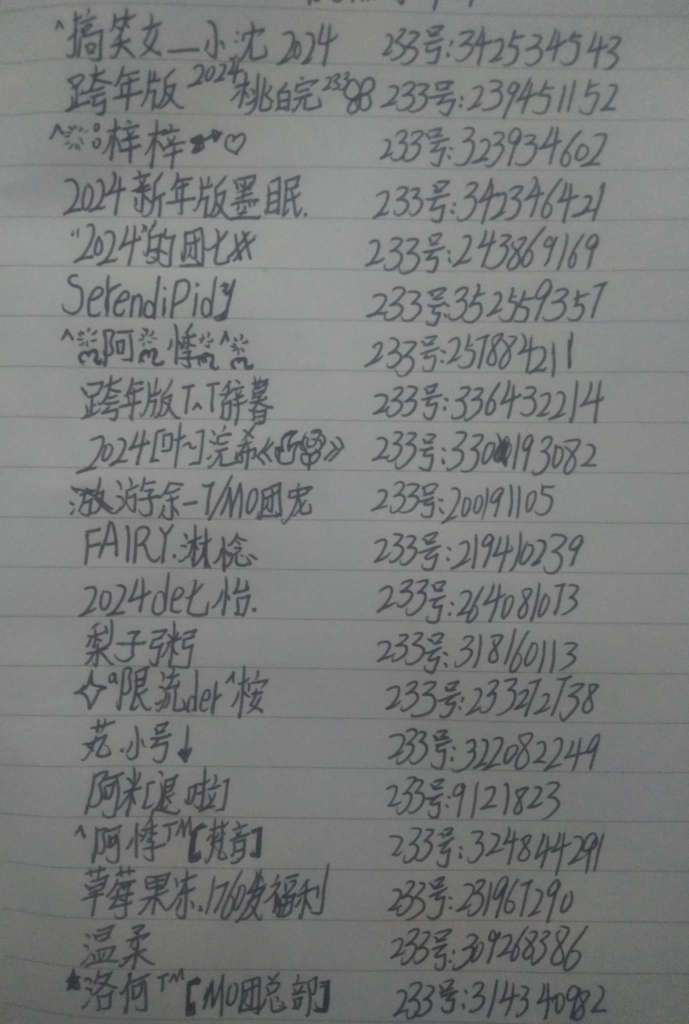 ^搞笑女一小沈 2024 233号:342534543
跨年版 2024 桃皖 233 88 233号:239451152
^梓梓♡ 233号:323934602
2024新年版墨眠. 233号:342346421
"2024"的团七 233号:243869169
SerendiPidy 233号:352559357
^阿悸^ 233号:257884211
跨年版T^T辞暮 233号:336432214
2024[叶]浣希《》 233号:330193082
游余-T/M0团宠 233号:200191105
FAIRY.淋棯 233号:219410239
2024de七怡. 233号:264081073
梨子粥 233号:318160113
限流der^桉 233号:233272738
小号↓ 233号:322082249
阿米[退啦] 233号:9121823
^阿悸™[梵音] 233号:324844291
草莓果冻.1760发福利 233号:231967290
温柔 233号:309268386
★洛何™[M0团总部] 233号:314340982